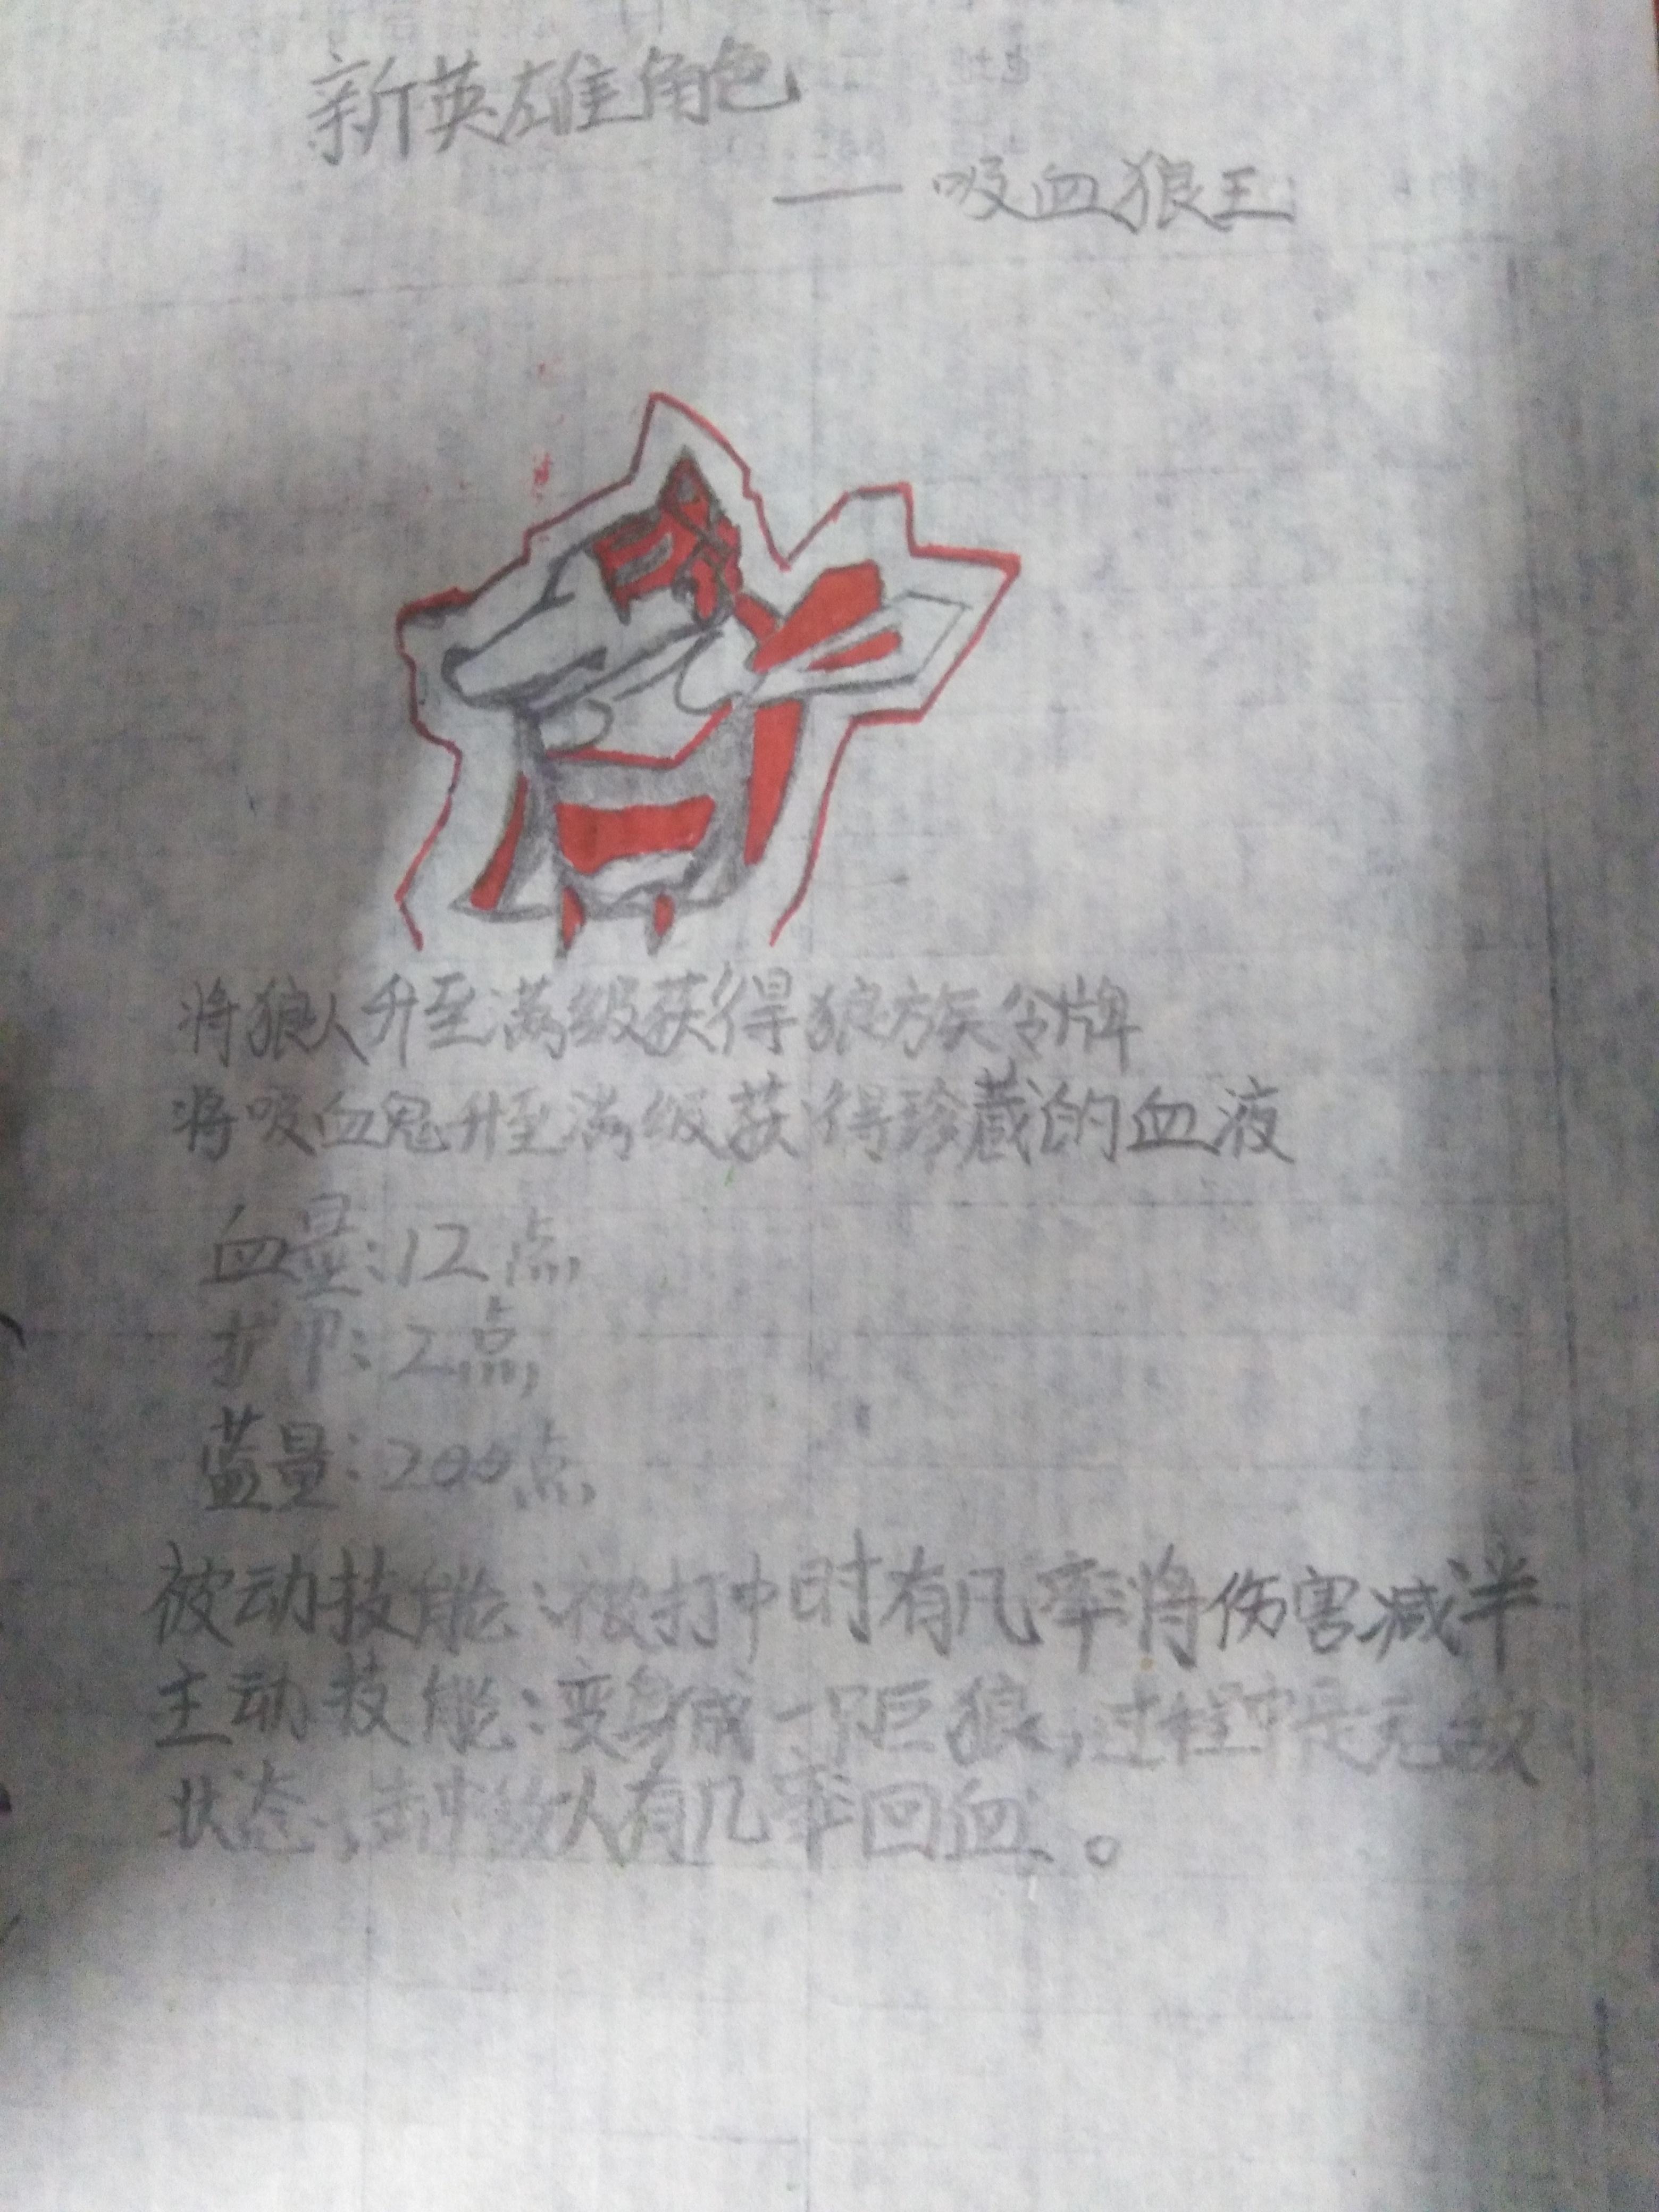 新英雄角色
——吸血狼王
将狼人升至满级获得狼族令牌
将吸血鬼升至满级获得珍藏的血液
血量:12点
护甲:2点
蓝量:200点
被动技能:被打中时有几率将伤害减半
主动技能:变身成一只巨狼,过程中是无敌
状态,击中敌人有几率回血。